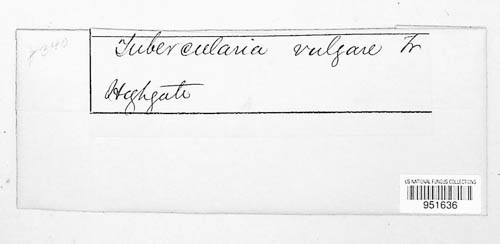 Tubercularia vulgare Fr
Highgate
US NATIONAL FUNGUS COLLECTIONS
951636